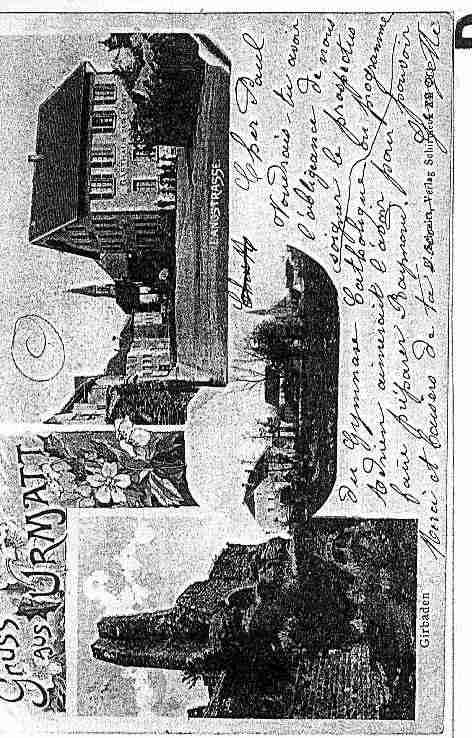 Gruss
aus URMATT
LANGSTRASSE
Girbaden
Cher Paul
Voudrais-tu avoir
l'obligeance de nous
soigner le prospectus
du Gymnase Catholique ou programme
Adrien aimerait l'avoir pour pouvoir
faire préparer Raymond.
Merci et baisers de ta
Verlag Schirmeck